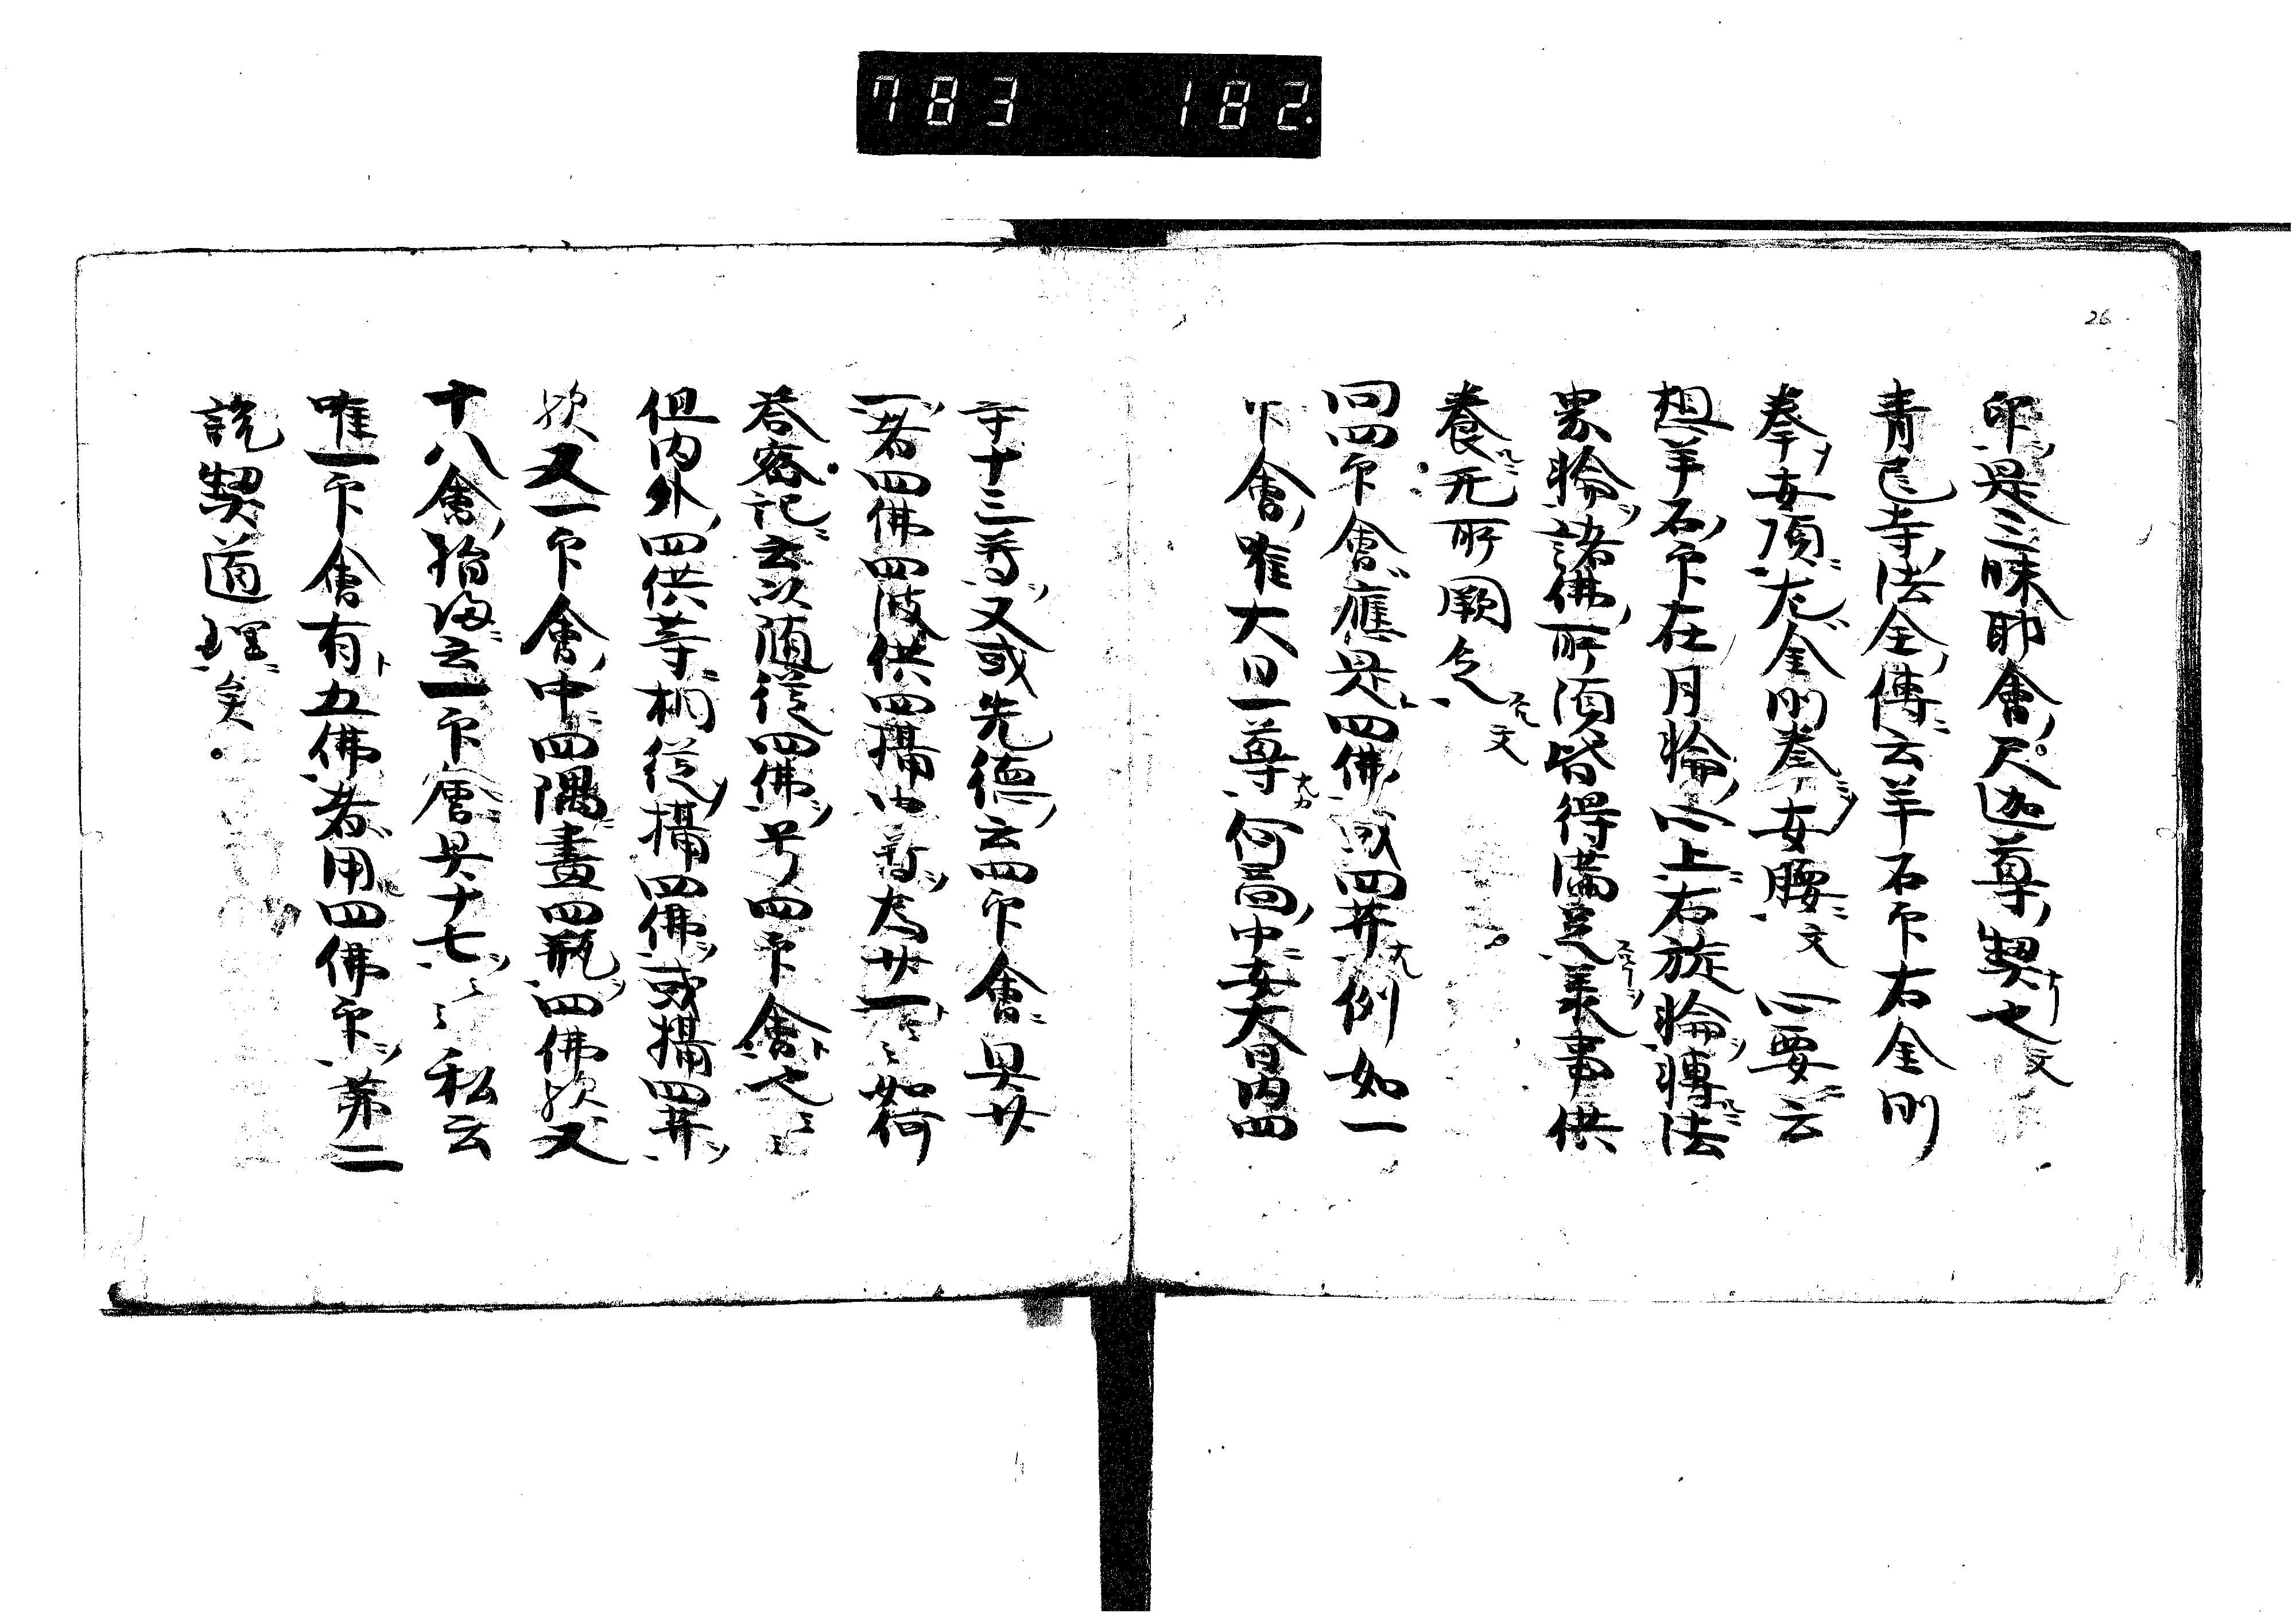 783 182
26
印是三昧耶會尺迦尊契也文
青龍寺法全傳云羊石印右金剛
拳安頂左金剛拳安腰文 心要云
想羊石印在月輪心上右旋輪轉法
界輪諸佛所須皆得滿足業事供
養无所闕乏文
問四印會應是四佛或四井例如一
印會唯大日一尊何 中安大日内四
十三尊又或先德云四印會具廿
一者四佛四波供四攝 暫為廿一云云如何
答密記云以随從四佛号四印會也云云
但内外四供等相從攝四佛或攝四井
欤又一印會中四隅畫四瓶四佛欤又
十八會指歸云一印會具十七云云私云
唯一印會有五佛者用四佛印第二
說契道理矣